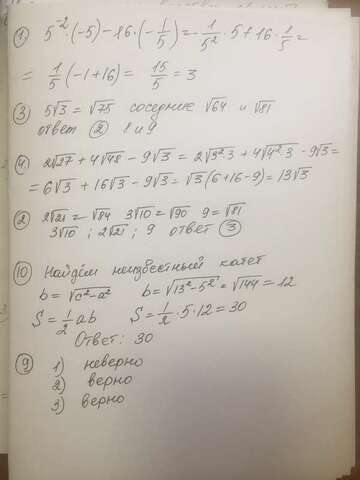 1) 5⁻² · (-5) - 16 · (-1/5) = -1/5² · 5 + 16 · 1/5 =
= 1/5 (-1+16) = 15/5 = 3
3) 5√3 = √75 соседние √64 и √81
ответ 2) 8 и 9
4. 2√27 + 4√48 - 9√3 = 2√3²3 + 4√4²3 - 9√3 =
= 6√3 + 16√3 - 9√3 = √3 (6+16-9) = 13√3
2) 2√21 = √84 3√10 = √90 9 = √81
3√10 ; 2√21 ; 9 ответ 3)
10) Найдём неизвестный катет
b = √c²-a² b = √13²-5² = √144 = 12
S = 1/2 ab S = 1/2 · 5 · 12 = 30
Ответ: 30
9) 1) неверно
2) верно
3) верно